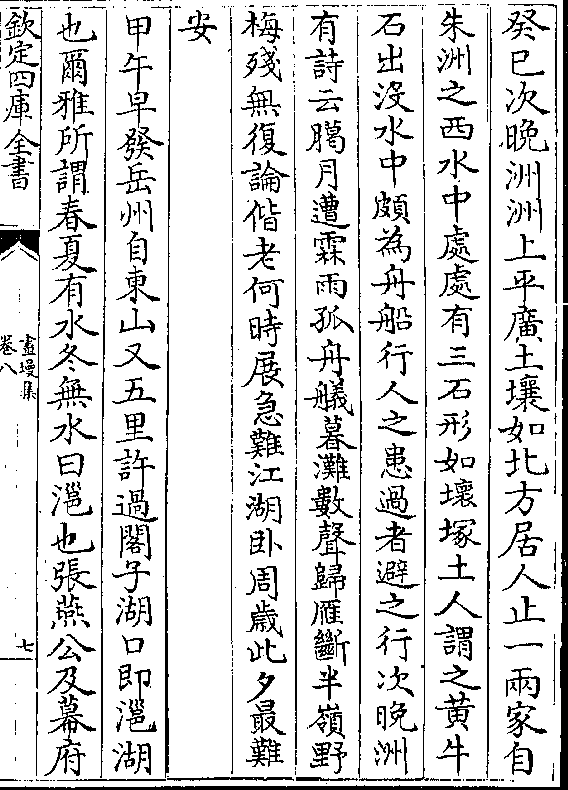 癸巳次晩洲洲上平廣土壤如北方居人止一兩家自
朱洲之西水中處處有三石形如壞塚土人謂之黄牛
石出沒水中頗為舟船行人之患過者避之行次晩洲
有詩云臈月遭霖雨孤舟艤暮灘數聲歸雁斷半嶺野
梅殘無復論偕老何時展急難江湖卧周歳此夕最難
安
甲午早發岳州自東山又五里許過閣子湖口即㴩湖
也爾雅所謂春夏有水冬無水曰㴩也張燕公及幕府
欽定四庫全書
畫墁集
卷八
七